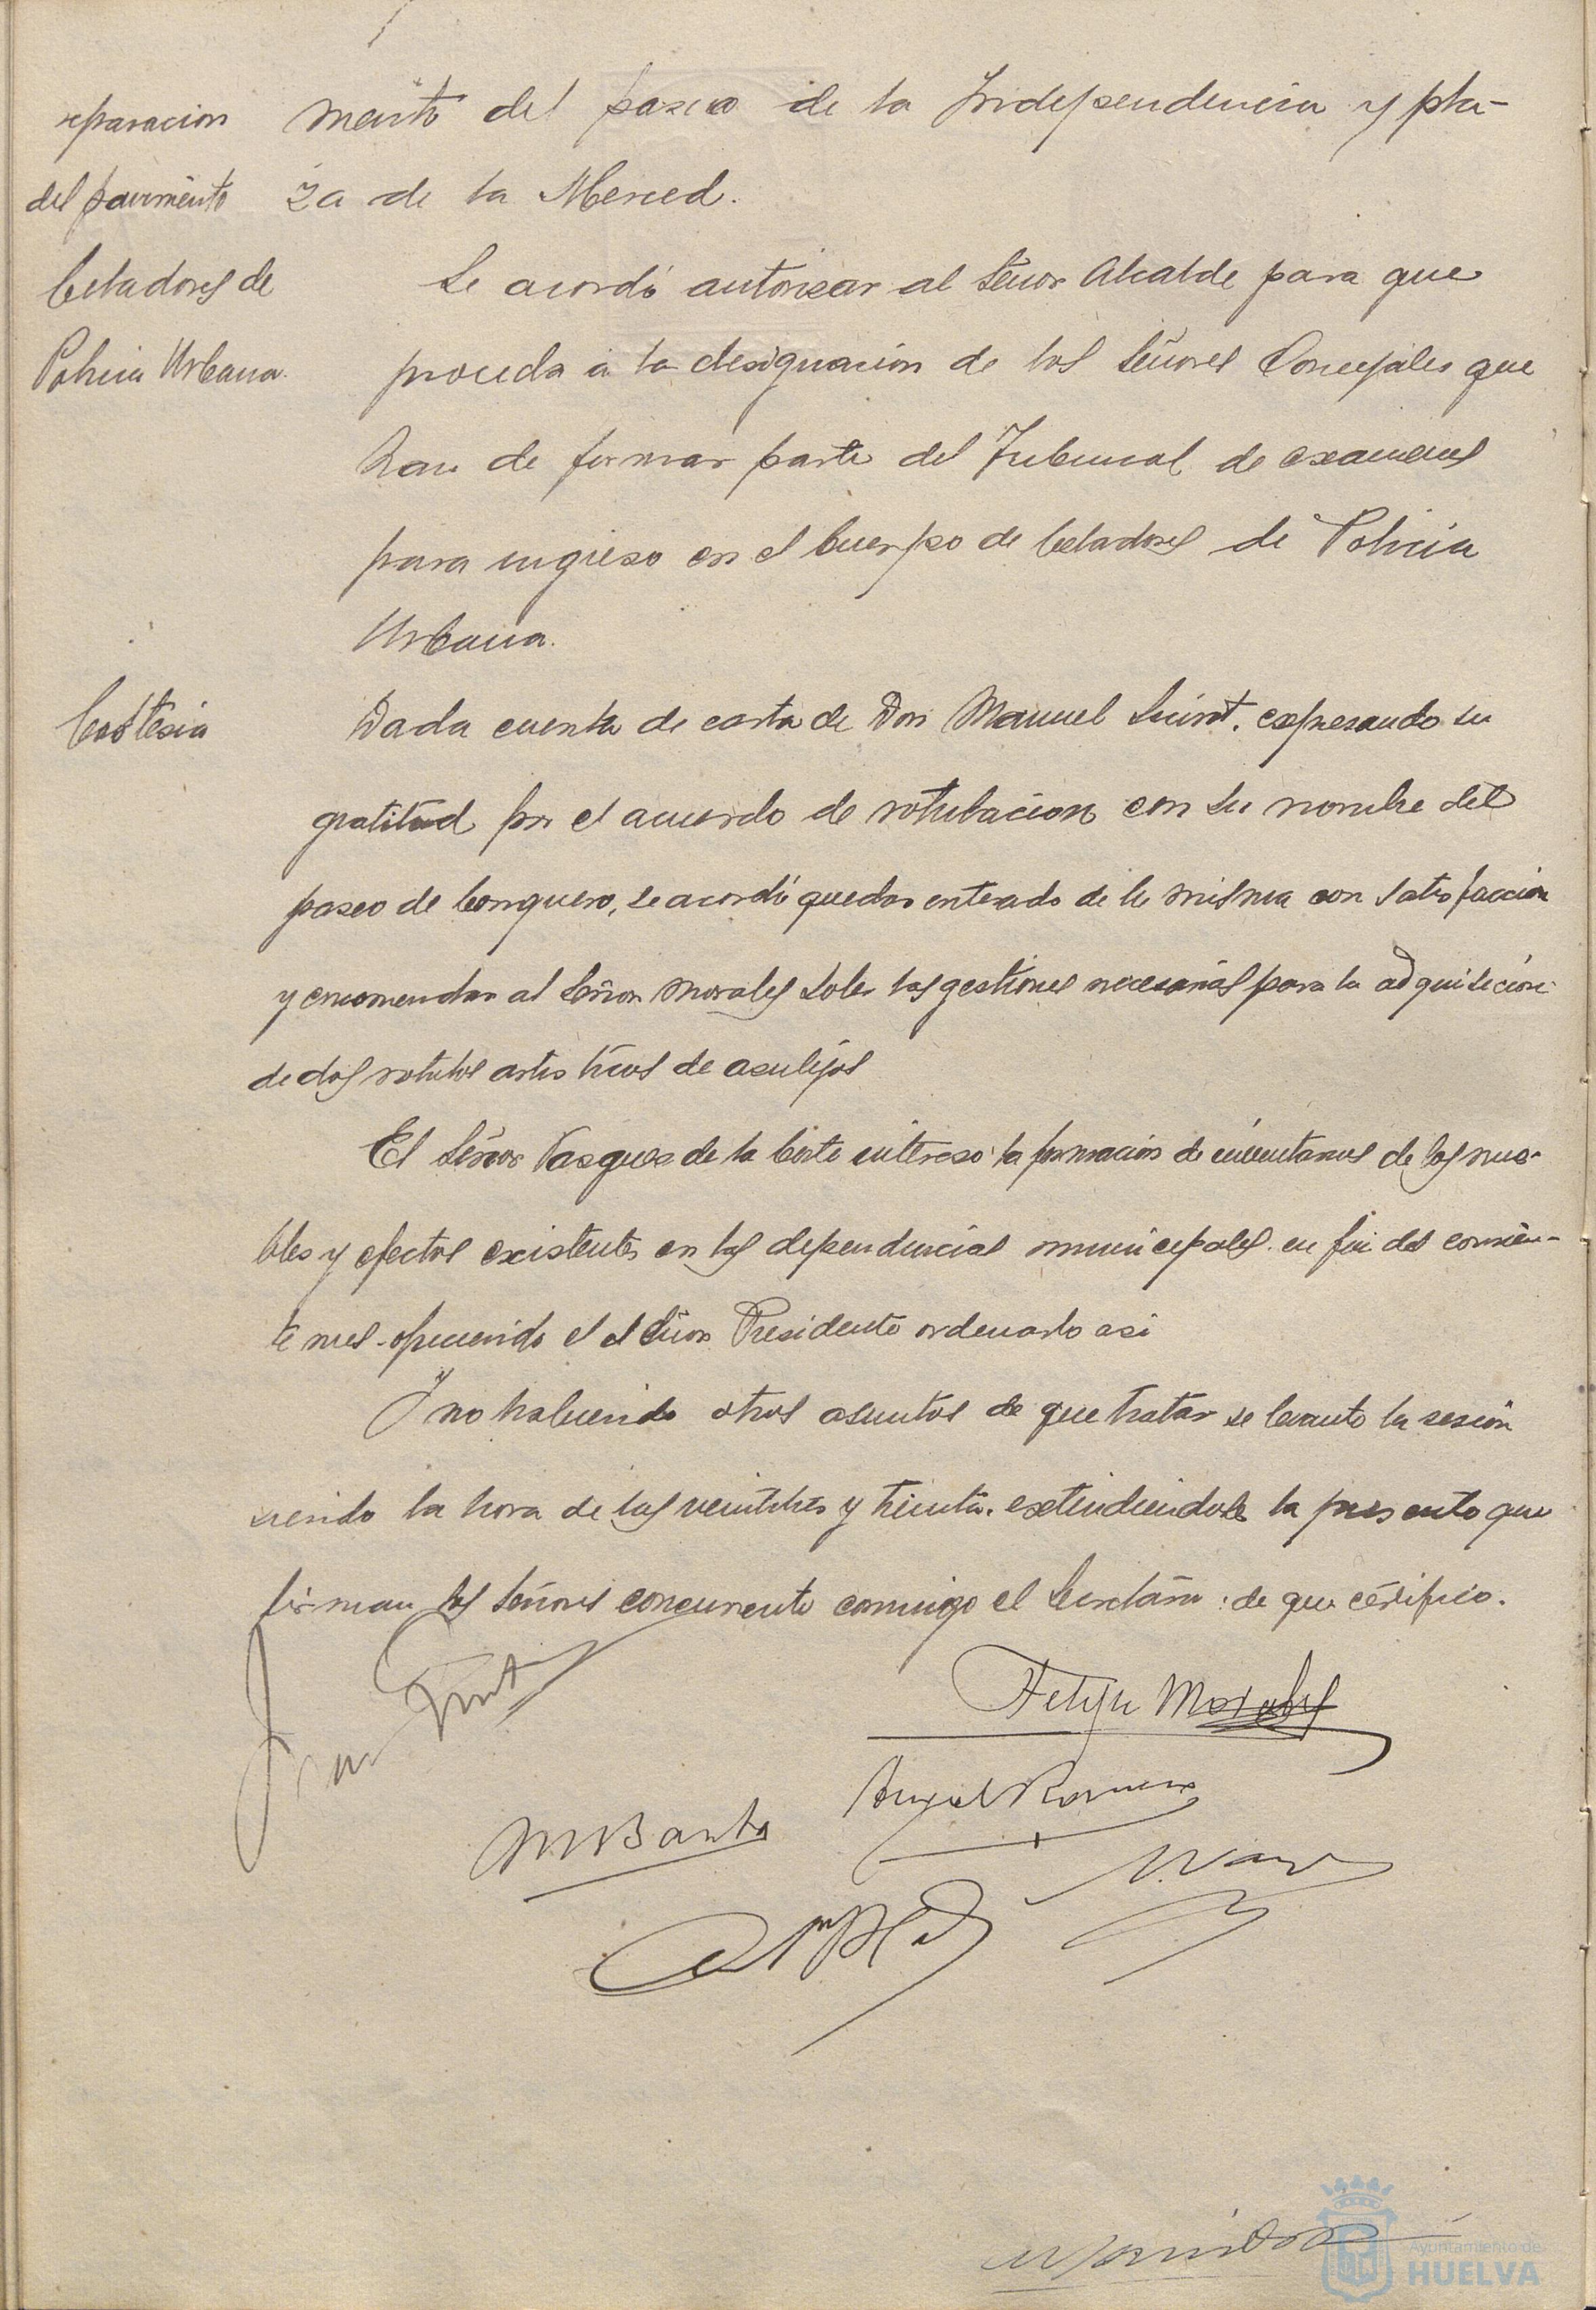 reparacion
del pavimento
mento del paseo de la Independencia y pla-
za de la Merced.
Celadores de
Policia Urbana.
Se acordó autorizar al Señor Alcalde para que
proceda a la designación de los Señores Concejales que
han de formar parte del Tribunal de examenes
para ingreso en el Cuerpo de Celadores de Policia
Urbana.
Cortesia
Dada cuenta de carta de Don Manuel Siurot, expresando su
gratitud por el acuerdo de rotulacion con su nombre del
paseo de Conquero, se acordó quedar enterado de la misma con satisfaccion
y encomendar al Señor Morales Soler las gestiones necesarias para la adquisicion
de dos rotulos artisticos de asulejos
El Señor Vasques de la Corte intereso la formación de inventarios de los mue-
bles y efectos existentes en las dependencias municipales en fin del corrien-
te mes ofreciendo el Señor Presidente ordenarlo asi
Y no habiendo otros asuntos de que tratar se levanto la sesión
siendo la hora de las veintitres y treinta. extendiendose la presente que
firman los Señores concurrente conmigo el Secretario: de que certifico.
Felipe Morales
M Barba
Angel Romero
Ayuntamiento de
HUELVA